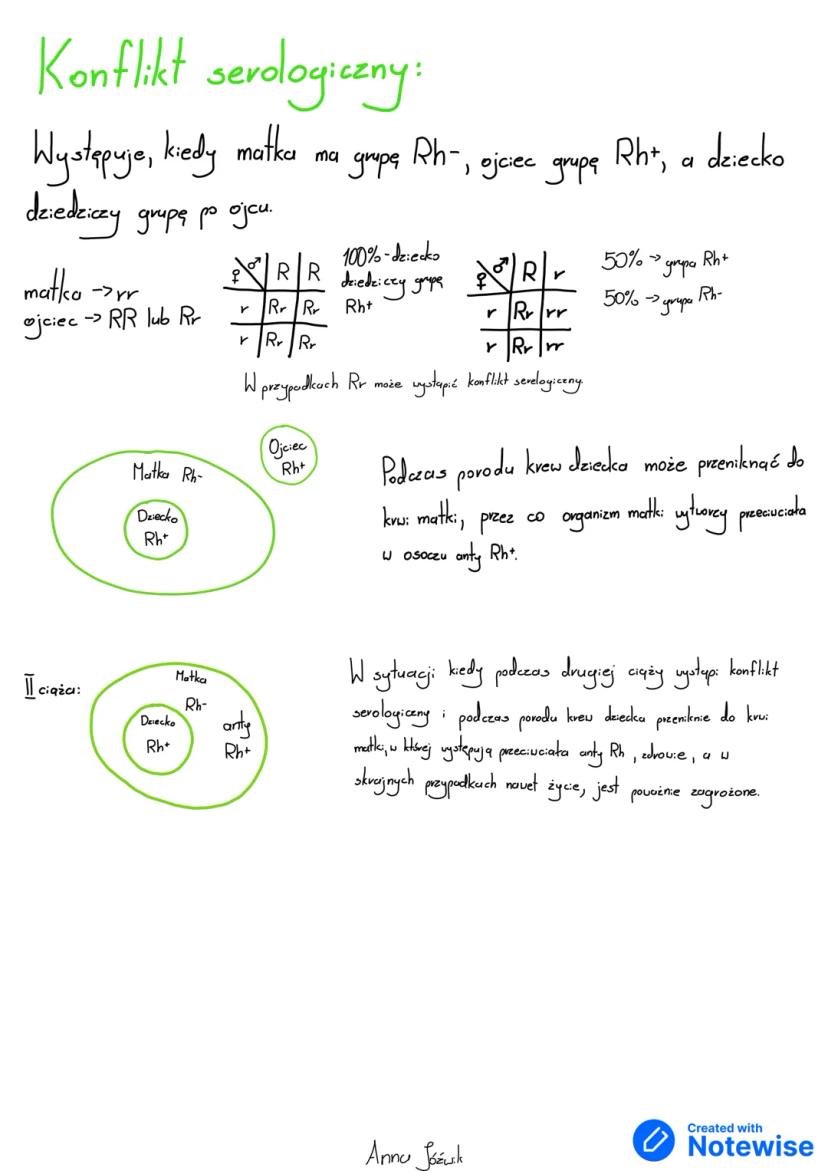 Konflikt serologiczny:
Występuje, kiedy matka ma grupę Rh-, ojciec grupę Rh+, a dziecko
dziedziczy grupę po ojcu.
matka -> rr
ojciec -> RR lub Rr
♀ ♂ R R
r Rr Rr
r Rr Rr
100% - dziecko
dziedziczy grupę
Rh+
♀ ♂ R r
r Rr rr
r Rr rr
50% -> grupa Rh+
50% -> grupa Rh-
W przypadkach Rr może wystąpić konflikt serologiczny.
Ojciec
Rh+
Matka Rh-
Dziecko
Rh+
Podczas porodu krew dziecka może przeniknąć do
krwi matki, przez co organizm matki wytworzy przeciwciała
w osoczu anty Rh+.
II ciąża:
Matka
Rh-
Dziecko
Rh+
anty
Rh+
W sytuacji kiedy podczas drugiej ciąży wystąpi konflikt
serologiczny i podczas porodu krew dziecka przeniknie do krwi
matki, w której występują przeciwciała anty Rh, zdrowie, a w
skrajnych przypadkach nawet życie, jest poważnie zagrożone.
Anna Józwik
Created with
Notewise